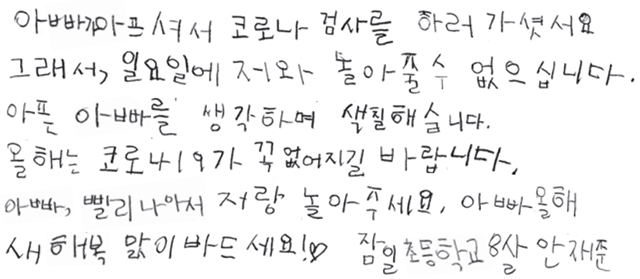 아빠가아프셔서 코로나 검사를 하러 가셧서요
그래서, 일요일에 저와 놀아줄 수 없으십니다.
아픈 아빠를 생각하며 색칠해습니다.
올해는 코로나19가 꼭 없어지길 바랍니다.
아빠, 빨리 나아서 저랑 놀아주세요. 아빠올해
새해복 많이바드세요!♡ 잠일초등학교 8살 안재준